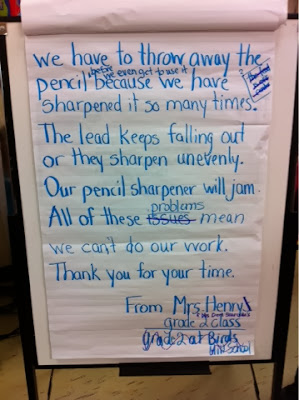 we have to throw away the
before we even get to use it
pencil because we have
sharpened it so many times.
The lead keeps falling out
or they sharpen unevenly.
Our pencil sharpener will jam.
problems
All of these issues mean
we can't do our work.
Thank you for your time.
From Mrs. Henry's
grade 2 class
grade 2 at Birds
School